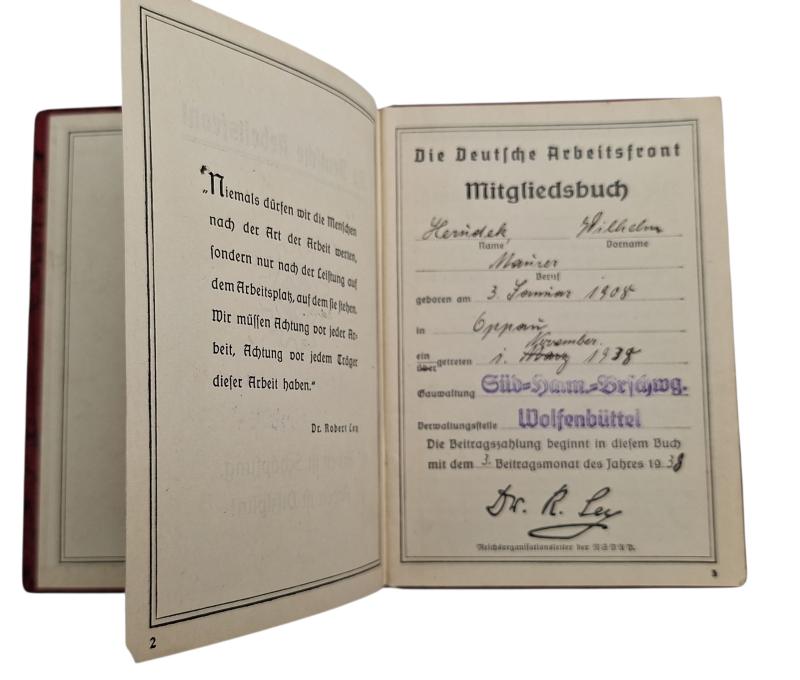 „Niemals dürfen wir die Menschen
nach der Art der Arbeit werten,
sondern nur nach der Leistung auf
dem Arbeitsplatz, auf dem sie stehen.
Wir müssen Achtung vor jeder Ar-
beit, Achtung vor jedem Träger
dieser Arbeit haben.“
Dr. Robert Ley
2
Die Deutsche Arbeitsfront
Mitgliedsbuch
Herudek, Wilhelm
Name Vorname
Maurer
Beruf
geboren am 3. Januar 1908
in Oppau
November.
ein getreten 1. März 1938
über
Gauwaltung Süd-Han.-Brschwg.
Verwaltungsstelle Wolfenbüttel
Die Beitragszahlung beginnt in diesem Buch
mit dem 3. Beitragsmonat des Jahres 1938
Dr. R. Ley
Reichsorganisationsleiter der NSDAP.
3